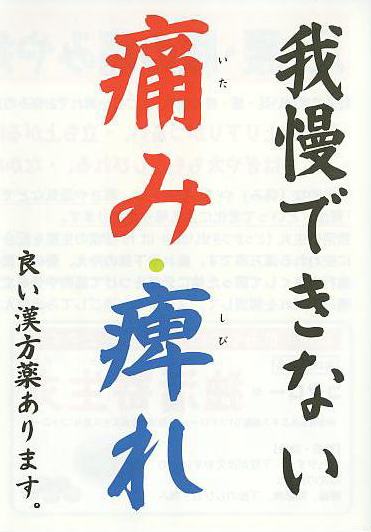 我慢できない
痛み・痺れ
いた
しび
良い漢方薬あります。